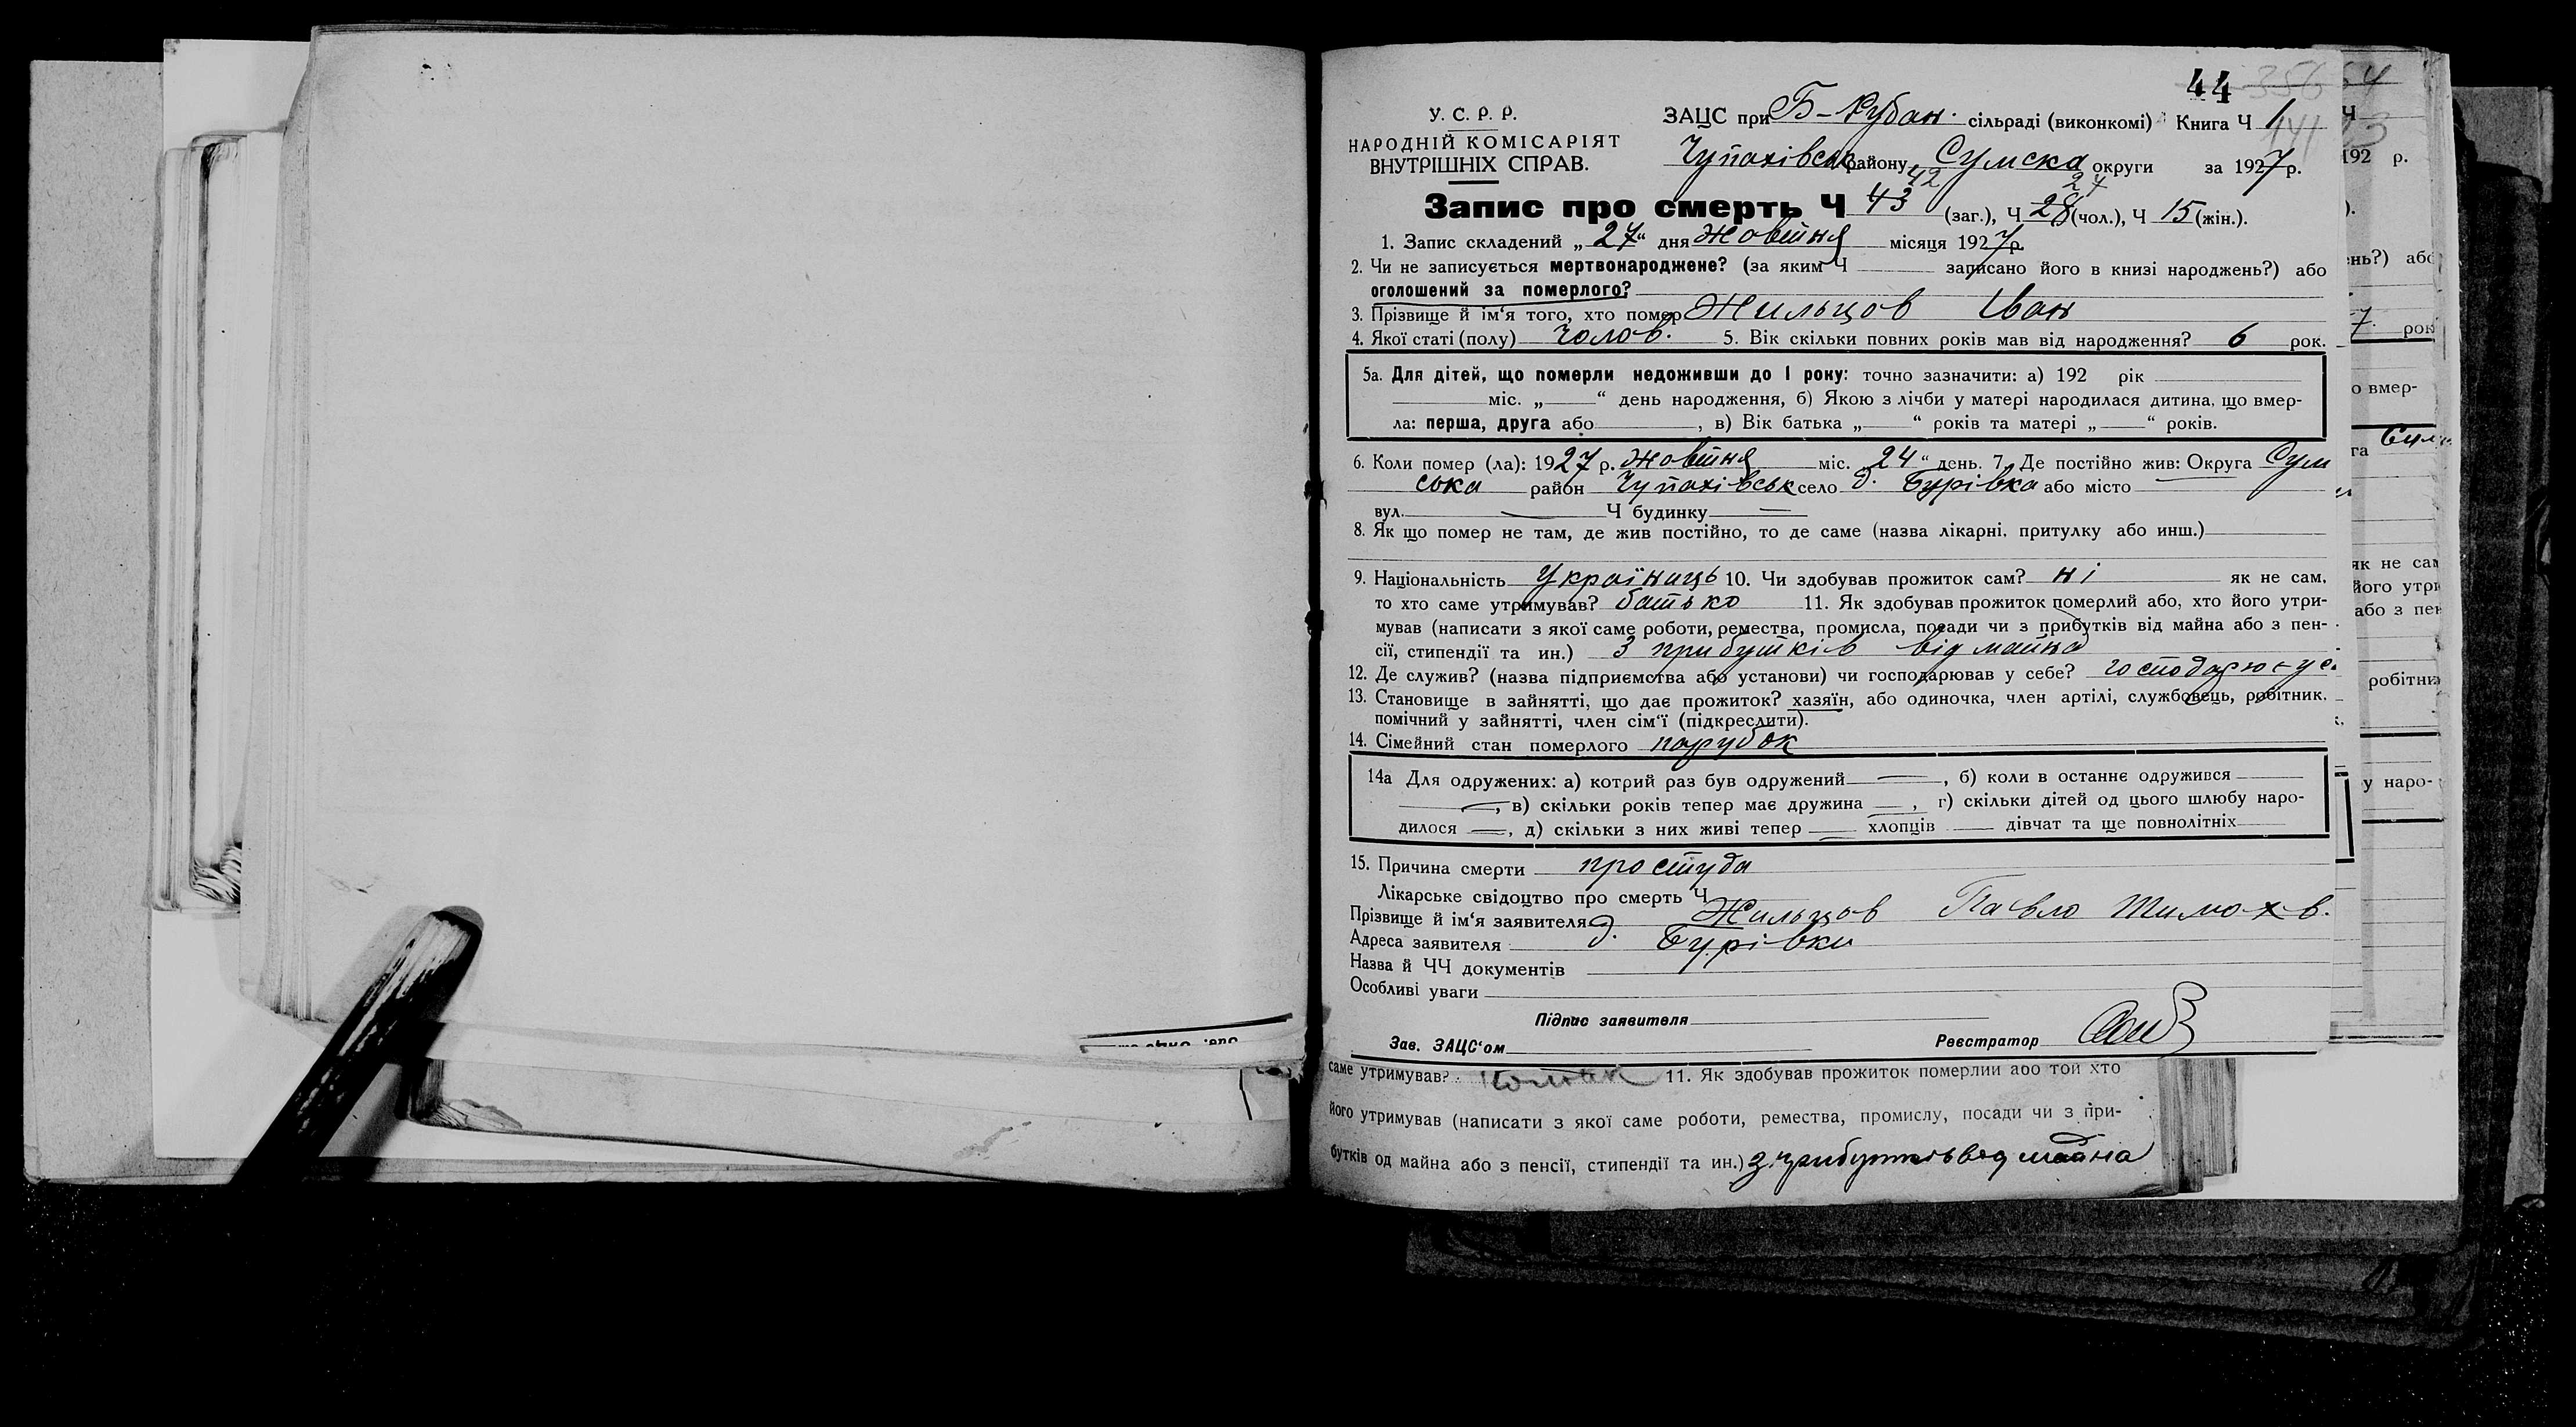 44 356
У. С. Р. Р.
НАРОДНІЙ КОМІСАРІЯТ
ВНУТРІШНІХ СПРАВ.
ЗАЦС при Б-Рубан. сільраді (виконкомі) Книга Ч 1
Чупахівськ району Сумска округи за 1927 р.
42 27
Запис про смерть Ч 43 (заг.), Ч 28 (чол.), Ч 15 (жін.).
1. Запис складений „ 27 “ дня Жовтня місяця 1927 р.
2. Чи не записується мертвонароджене? (за яким Ч записано його в книзі народжень?) або
оголошений за померлого?
3. Прізвище й ім‘я того, хто помер Жильцов Іван
4. Якої статі (полу) чолов. 5. Вік скільки повних років мав від народження? 6 рок.
5а. Для дітей, що померли недоживши до 1 року: точно зазначити: а) 192 рік
міс. „ “ день народження, б) Якою з лічби у матері народилася дитина, що вмер-
ла: перша, друга або , в) Вік батька „ “ років та матері „ “ років.
6. Коли помер (ла): 1927 р. Жовтня міс. 24 “ день. 7. Де постійно жив: Округа Сум
ська район Чупахівськ село д. Бурівка або місто
вул. Ч будинку
8. Як що помер не там, де жив постійно, то де саме (назва лікарні, притулку або инш.)
9. Національність Українець 10. Чи здобував прожиток сам? ні як не сам,
то хто саме утримував? батько 11. Як здобував прожиток померлий або, хто його утри-
мував (написати з якої саме роботи, ремества, промисла, посади чи з прибутків від майна або з пен-
сії, стипендії та ин.) З прибутків від майна
12. Де служив? (назва підприємства або установи) чи господарював у себе? господарює у с.
13. Становище в зайнятті, що дає прожиток? хазяїн, або одиночка, член артілі, службовець, робітник,
помічний у зайнятті, член сім‘ї (підкреслити).
14. Сімейний стан померлого парубок
14а Для одружених: а) котрий раз був одружений , б) коли в останнє одружився
, в) скільки років тепер має дружина , г) скільки дітей од цього шлюбу наро-
дилося , д) скільки з них живі тепер хлопців дівчат та ще повнолітніх
15. Причина смерти простуда
Лікарське свідоцтво про смерть Ч
Прізвище й ім‘я заявителя Жильцов Павло Тимох в.
Адреса заявителя д. Бурівки
Назва й ЧЧ документів
Особливі уваги
Підпис заявителя
Зав. ЗАЦС‘ом Реєстратор
саме утримував? 11. Як здобував прожиток померлий або той хто
його утримував (написати з якої саме роботи, ремества, промислу, посади чи з при-
бутків од майна або з пенсії, стипендії та ин.) з прибутків від майна
192 р.
нь?) або
7. рок
о вмер-
га Сум
як не сам
його утри
або з пен
робітни
у наро-